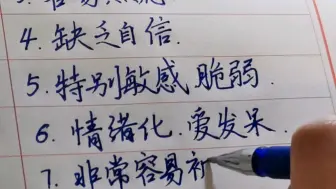 4. 缺乏自信.
5. 特别敏感 脆弱.
6. 情绪化. 爱发呆.
7. 非常容易